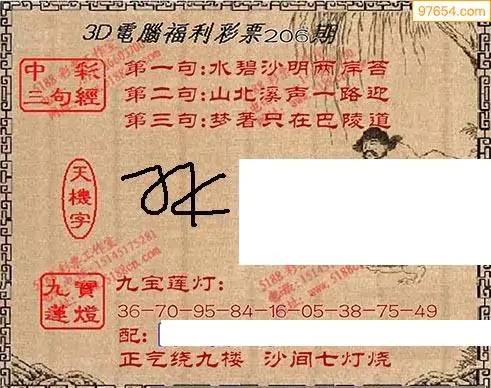 97654.com
3D電腦福利彩票206期
中彩三句經
第一句:水碧沙明两岸苔
第二句:山北溪声一路迎
第三句:梦著只在巴陵道
天機字
九寶蓮燈
九宝莲灯:
36-70-95-84-16-05-38-75-49
配:
正气绕九楼 沙间七灯烧